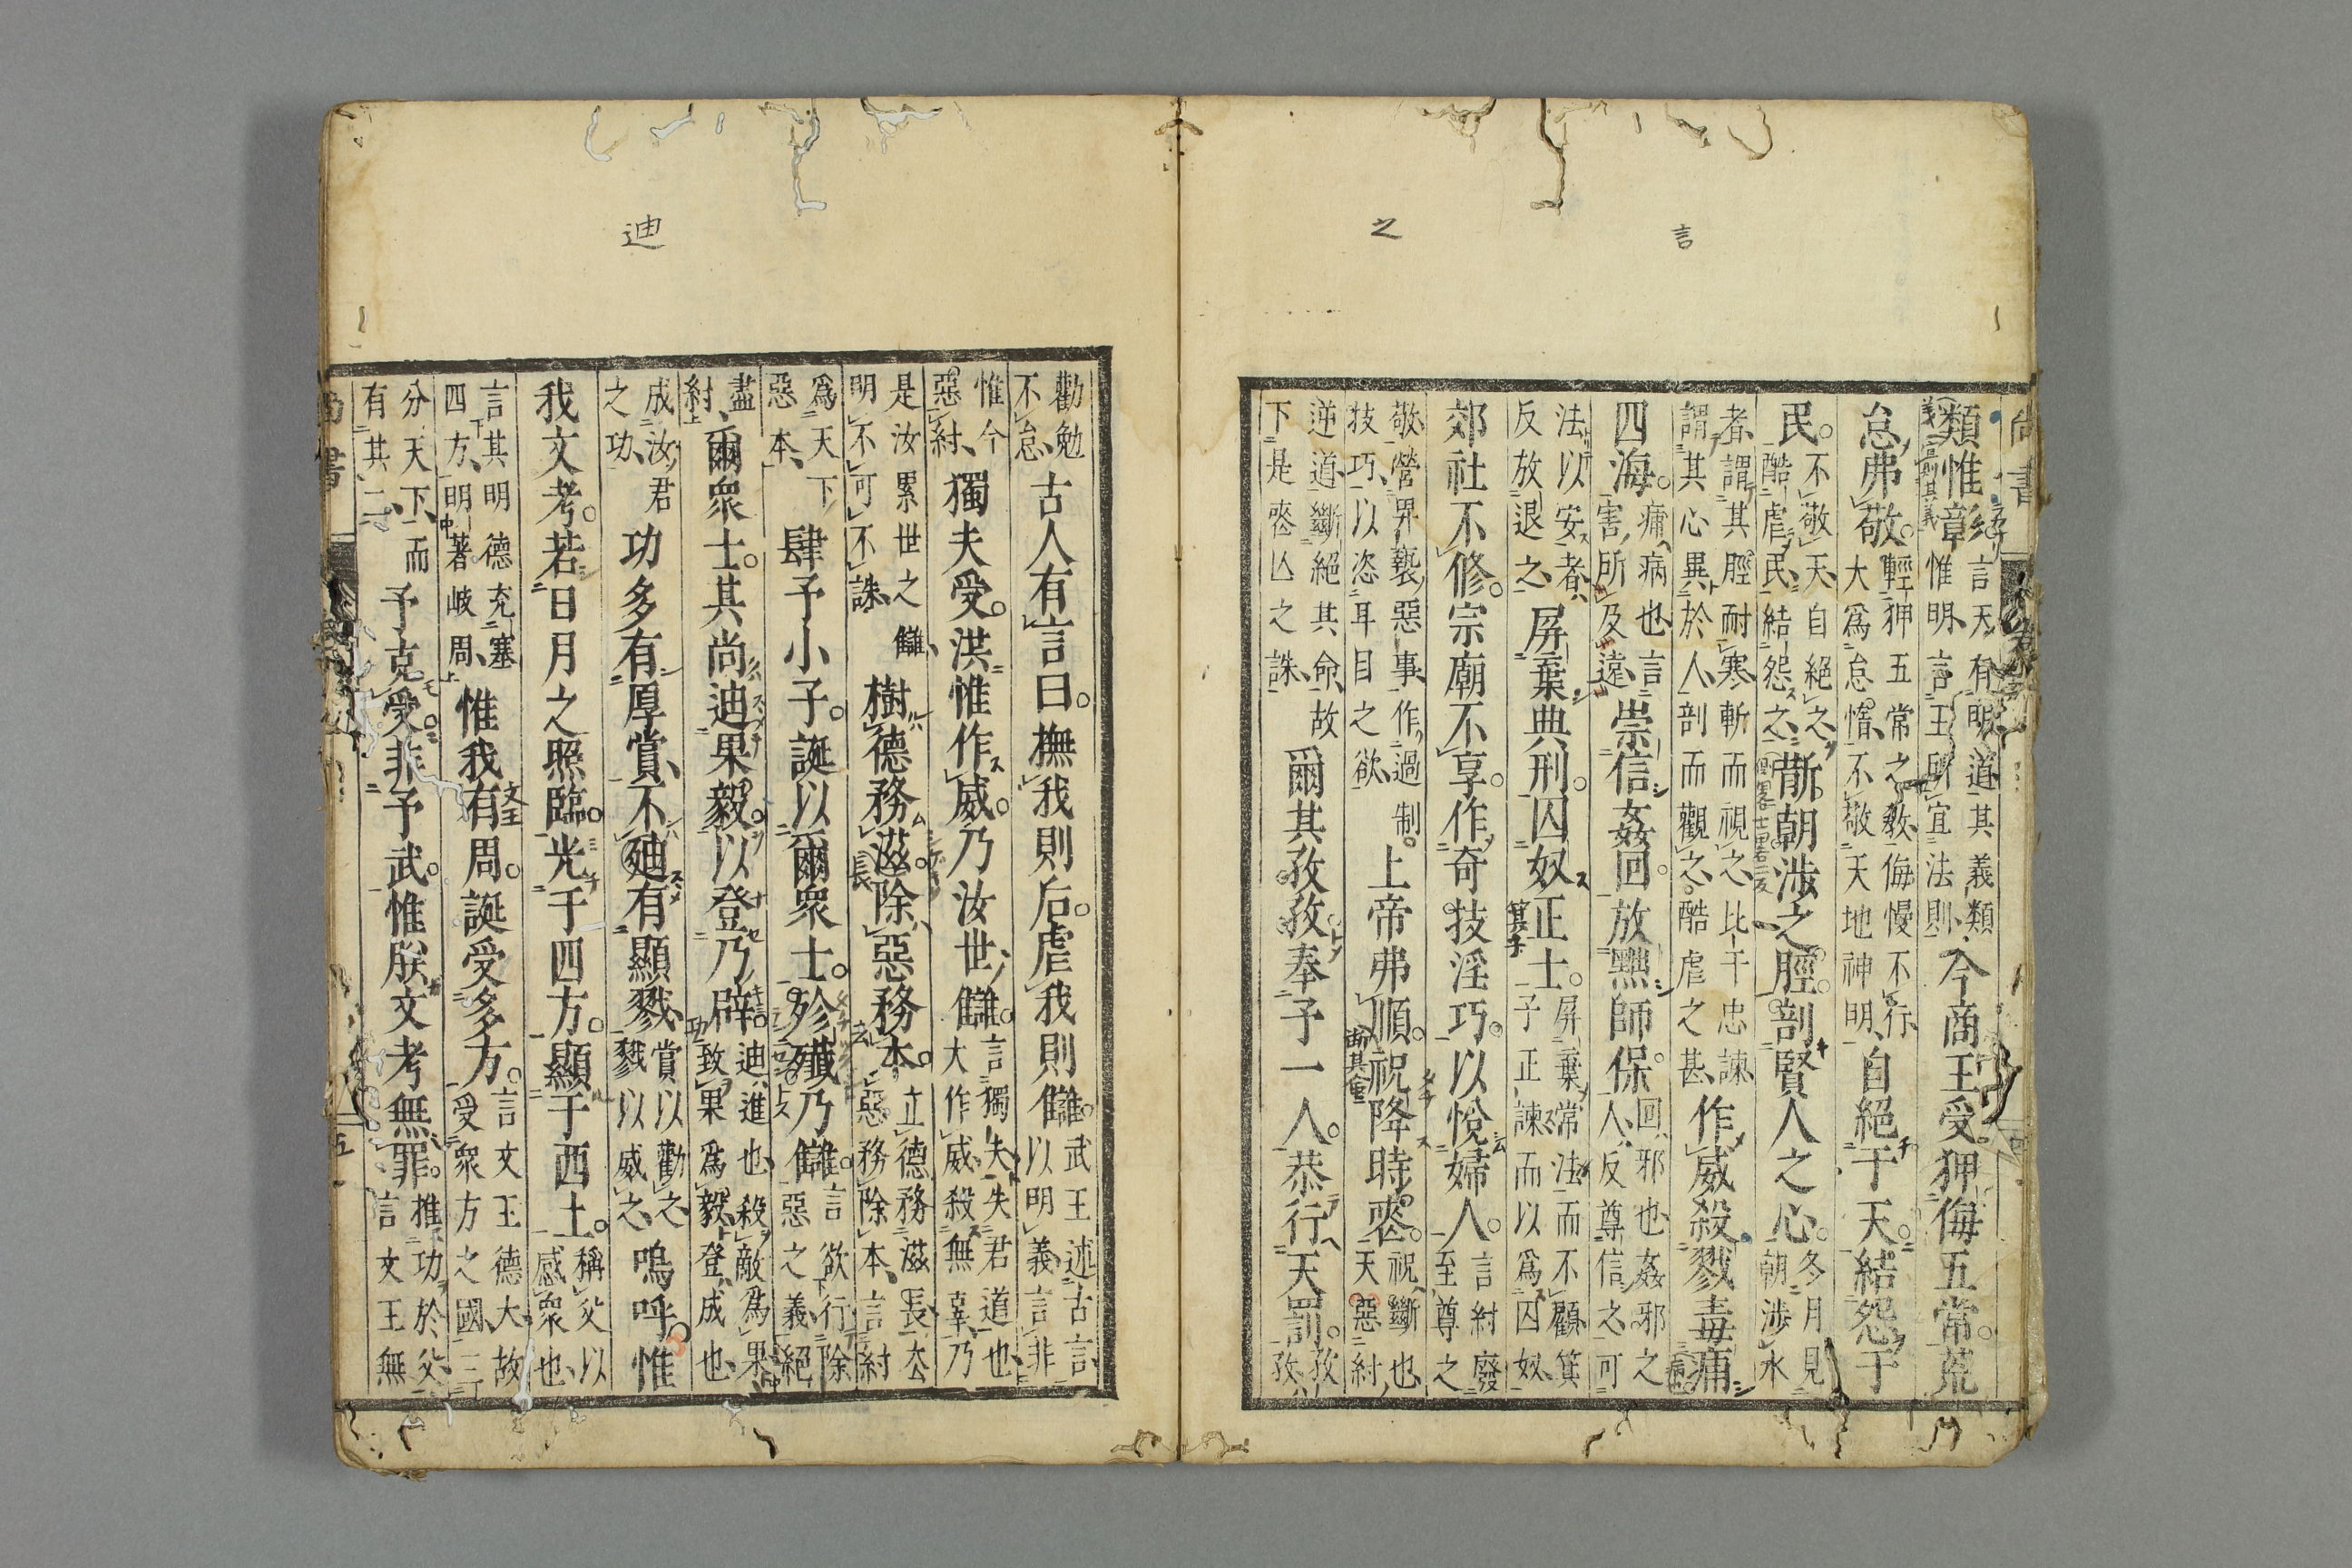 言
之
尚書
類惟彰言天有明道其義類惟明言王所宜法則今商王受狎侮五常荒
怠弗敬輕狎五常之教侮慢不行大爲怠惰不敬天地神明自絕于天結怨于
民不敬天自絕之酷虐民結怨之斮朝涉之脛剖賢人之心冬月見朝涉水
者謂其脛耐寒斬而視之比干忠諫謂其心異於人剖而觀之酷虐之甚作威殺戮毒痡
四海痡病也言害所及遠崇信姦回放黜師保回邪也姦邪之人反尊信之可
法以安者反放退之屏棄典刑囚奴正士屏棄常法而不顧箕子正諫而以爲囚奴
郊社不修宗廟不享作奇技淫巧以悅婦人言紂廢至尊之
敬營卑褻惡事作過制技巧以恣耳目之欲上帝弗順祝降時喪祝斷也天惡紂
逆道斷絕其命故下是喪亾之誅爾其孜孜奉予一人恭行天罰孜孜
迪
勸勉不怠古人有言曰撫我則后虐我則讎武王述古言以明義言非
惟今惡紂獨夫受洪惟作威乃汝世讎言獨夫失君道也大作威殺無辜乃
是汝累世之讎明不可不誅樹德務滋除惡務本立德務滋長去惡務除本言紂
爲天下惡本肆予小子誕以爾眾士殄殲乃讎言欲行除惡之義絕
盡紂爾眾士其尚迪果毅以登乃辟迪進也殺敵爲果致果爲毅登成也
成汝君之功功多有厚賞不迪有顯戮賞以勸之戮以威之嗚呼惟
我文考若日月之照臨光于四方顯于西土稱父以感衆也
言其明德充塞四方明著岐周惟我有周誕受多方言文王德大故受衆方之國三
分天下而有其二予克受非予武惟朕文考無罪推功於父言文王無